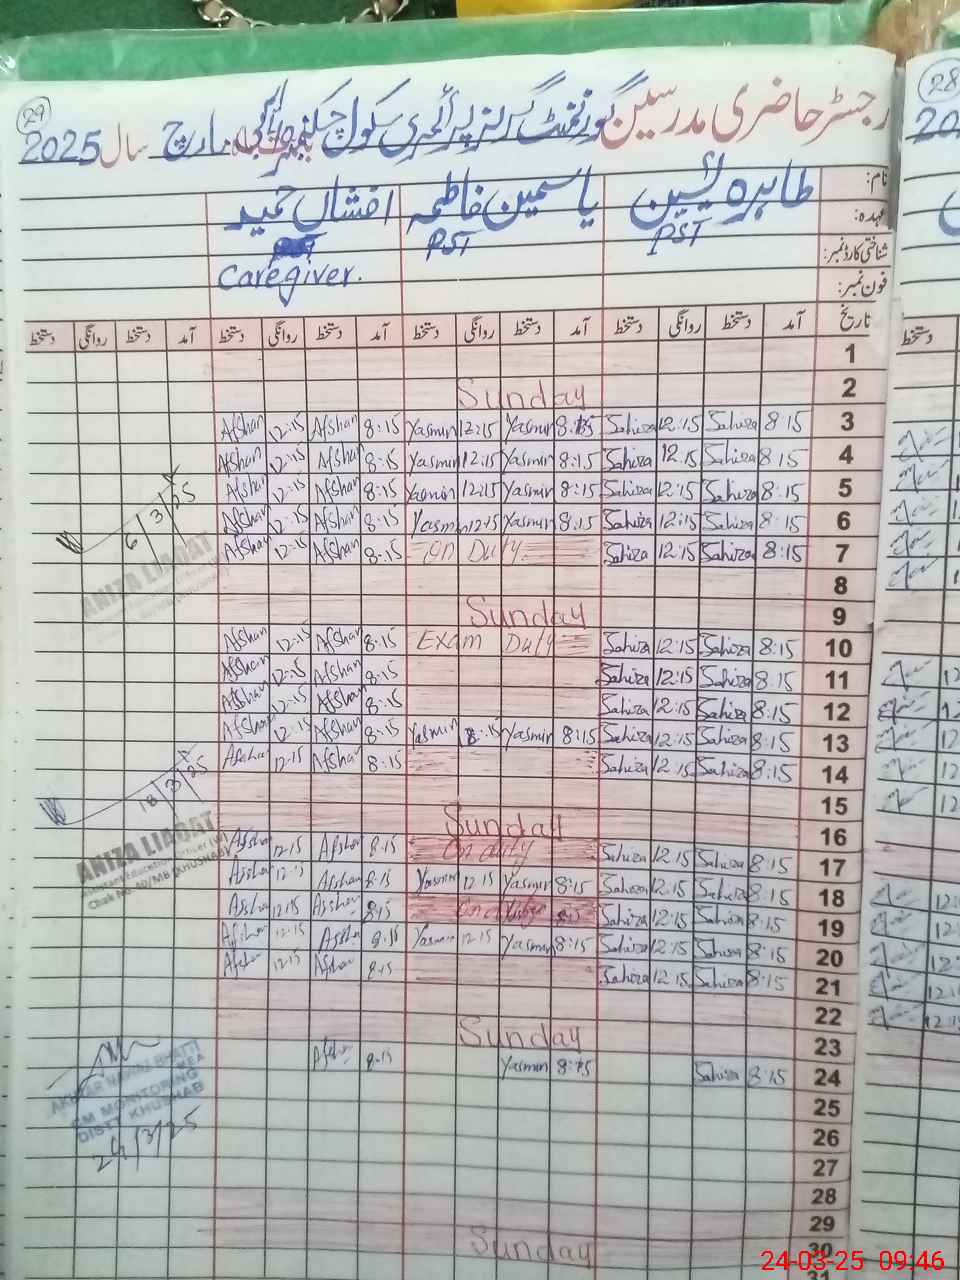 29
28
رجسٹر حاضری مدرسین گورنمنٹ گرلز پرائمری سکول مارچ سال 2025
20
نام: طاہرہ یٰسین یاسمین فاطمہ افشاں حمید
عہدہ: PST PST
شناختی کارڈ نمبر: Caregiver.
فون نمبر:
تاریخ آمد دستخط روانگی دستخط آمد دستخط روانگی دستخط آمد دستخط روانگی دستخط آمد دستخط روانگی دستخط
دستخط
1
Sunday 2
Afshan 12:15 Afshan 8:15 Yasmin 12:15 Yasmin 8:15 Sahiza 12:15 Sahiza 8:15 3
Afshan 12:15 Afshan 8:15 Yasmin 12:15 Yasmin 8:15 Sahiza 12:15 Sahiza 8:15 4
Afshan 12:15 Afshan 8:15 Yasmin 12:15 Yasmin 8:15 Sahiza 12:15 Sahiza 8:15 5
Afshan 12:15 Afshan 8:15 Yasmin 12:15 Yasmin 8:15 Sahiza 12:15 Sahiza 8:15 6
Afshan 12:15 Afshan 8:15 On Duty Sahiza 12:15 Sahiza 8:15 7
6/3/25
ANIZA LIAQAT
8
Sunday 9
Afshan 12:15 Afshan 8:15 Exam Duty Sahiza 12:15 Sahiza 8:15 10
Afshan 12:15 Afshan 8:15 Sahiza 12:15 Sahiza 8:15 11
Afshan 12:15 Afshan 8:15 Sahiza 12:15 Sahiza 8:15 12
Afshan 12:15 Afshan 8:15 Yasmin 8:15 Yasmin 8:15 Sahiza 12:15 Sahiza 8:15 13
Afshan 12:15 Afshan 8:15 Sahiza 12:15 Sahiza 8:15 14
18/3/25
ANIZA LIAQAT
Assistant Education Officer (W)
Chak No.40/MB (KHUSHAB)
15
Sunday 16
Afshan 12:15 Afshan 8:15 On duty Sahiza 12:15 Sahiza 8:15 17
Afshan 12:15 Afshan 8:15 Yasmin 12:15 Yasmin 8:15 Sahiza 12:15 Sahiza 8:15 18
Afshan 12:15 Afshan 8:15 Sahiza 12:15 Sahiza 8:15 19
Afshan 12:15 Afshan 8:15 Yasmin 12:15 Yasmin 8:15 Sahiza 12:15 Sahiza 8:15 20
Afshan 12:15 Afshan 8:15 Sahiza 12:15 Sahiza 8:15 21
22
Sunday 23
Afshan 8:15 Yasmin 8:15 Sahiza 8:15 24
BHATTI
MEA
CM MONITORING
DISTT KHUSHAB
24/3/25
25
26
27
28
29
Sunday 30
31
24-03-25 09:46